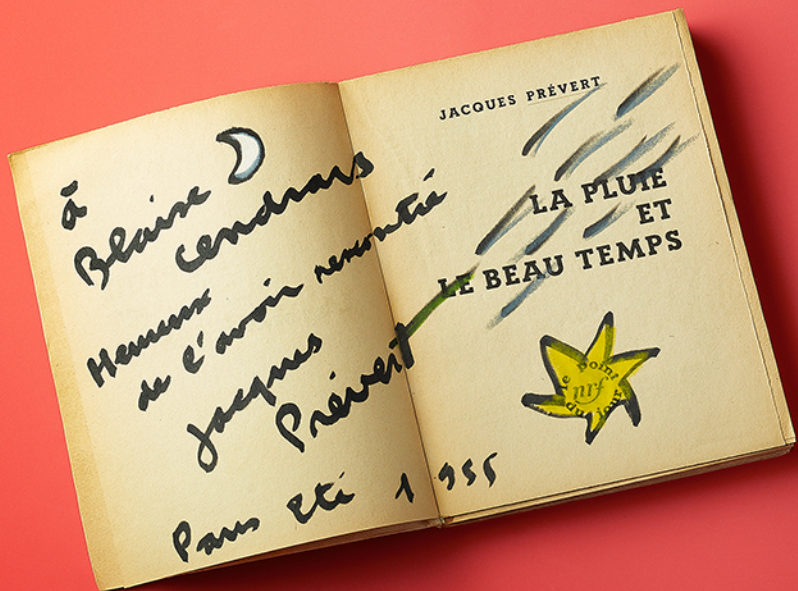 à
Blaise
Cendrars
Heureux
de l'avoir rencontré
Jacques
Prévert
Paris été 1955
JACQUES PRÉVERT
LA PLUIE
ET
LE BEAU TEMPS
le point du jour
nrf